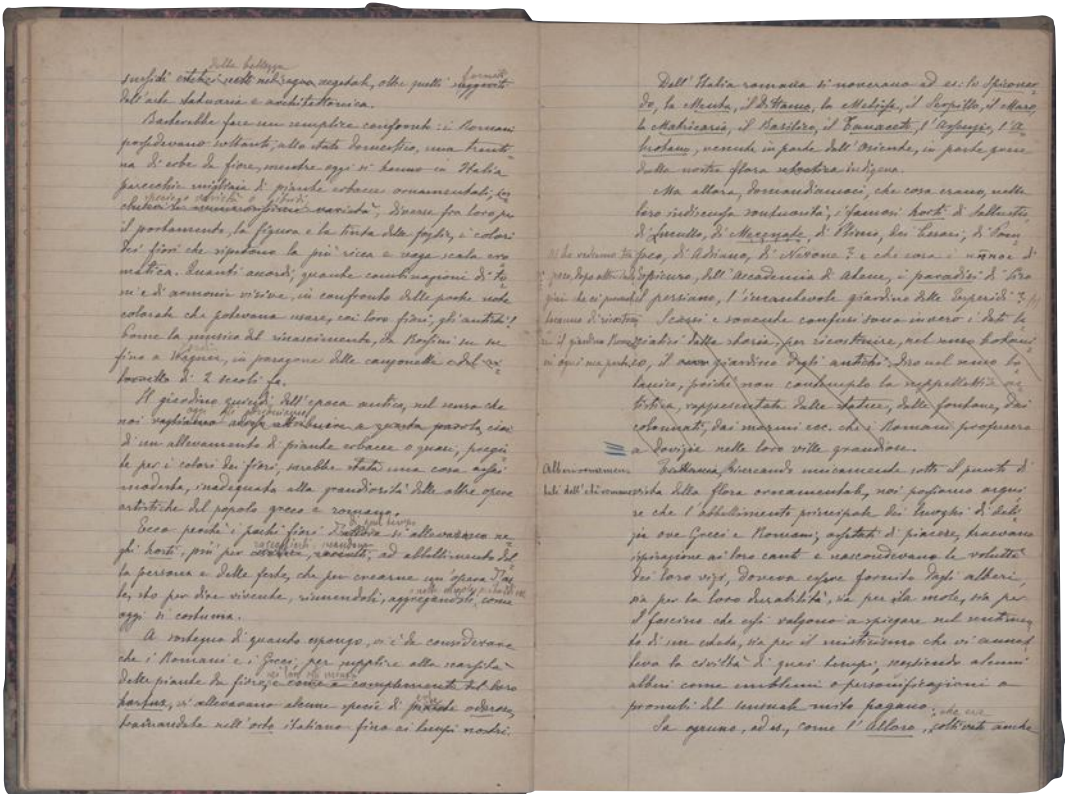 della bellezza
sussidi estetici nel regno vegetale, oltre quelli forniti
dall'arte statuaria e architettonica.
Basterebbe fare un semplice confronto: i Romani
possedevano soltanto, allo stato domestico, una trenti-
na di erbe da fiore, mentre oggi si hanno in Italia
parecchie migliaia di piante erbacee ornamentali,
specie, varietà o ibridi,
numerosissime varietà, diverse fra loro per
il portamento, la figura e la tinta delle foglie, i colori
dei fiori che ripetono la più ricca e vaga scala cro-
matica. Quanti accordi, quante combinazioni di to-
ni e di armonie visive, in confronto delle poche note
colorate che potevano usare, coi loro fiori, gli antichi!
Come la musica del rinascimento, da Rossini su su
fino a Wagner, in paragone delle canzonette e del ri-
tornello di 2 secoli fa.
Il giardino quindi dell'epoca antica, nel senso che
oggi noi
noi vogliamo attribuire a questa parola, cioè
di un allevamento di piante erbacee o quasi, pregia-
te per i colori dei fiori, sarebbe stata una cosa assai
modesta, inadeguata alla grandiosità delle altre opere
artistiche del popolo greco e romano.
Ecco perchè i pochi fiori di quei tempi si allevavano ne-
ghi horti, più per ad abbellimento del-
la persona e delle feste, che per crearne un'opera d'ar-
te, sto per dire vivente, riunendoli, aggregandoli, come
oggi si costuma.
A sostegno di quanto espongo, vi è da considerare
che i Romani e i Greci, per supplire alla scarsità
delle piante da fiore, e come complemento del loro
hortus, vi allevavano alcune specie di piante odorose,
tramandate nell'orto italiano fino ai tempi nostri.
Dell'Italia romana si noverano ad es: lo Spigonar-
do, la Menta, il Dittamo, la Melissa, il Serpillo, il Maro,
la Matricaria, il Basilico, il Tanaceto, l'Assenzio, l'A-
brotano, venute in parte dall'Oriente, in parte prese
dalla nostra flora indigena.
Ma allora, domandiamoci, che cosa erano, nella
loro indiscussa sontuosità, i famosi horti di Sallustio,
di Lucullo, di Mecenate, di Plinio, dei Cesari, di Pom-
peo, di Adriano, di Nerone? e che cosa i di
Epicuro, dell'Accademia di Atene, i paradisi di Ciro
il persiano, l'incantevole giardino delle Esperidi?
Scarsi e sovente confusi sono invero i dati la-
sciatici dalla storia, per ricostruire, nel senso botani-
co, il giardino degli antichi. Dico nel senso bo-
tanico, poichè non contemplo la suppellettile ar-
tistica, rappresentata dalle statue, dalle fontane, dai
colonnati, dai marmi ecc. che i Romani profusero
a dovizie nelle loro ville grandiose.
Alberi ornamen-
tali dell'età romana
Tuttavia, ricercando unicamente sotto il punto di
vista della flora ornamentale, noi possiamo argui-
re che l'abbellimento principale dei luoghi di deli-
zia ove Greci e Romani, assetati di piacere, traevano
ispirazione ai loro canti e nascondevano le voluttà
dei loro vizi, doveva essere fornito dagli alberi,
sia per la loro durabilità, sia per la mole, sia per
il fascino che essi valgono a spiegare nel sentimen-
to di un esteta, sia per il misticismo che vi annet-
teva la civiltà di quei tempi, vestendo alcuni
alberi come emblemi o personificazioni o
pronubi del sensuale mito pagano.
Sa ognuno, ad es., come l'Alloro, che era coltivato anche